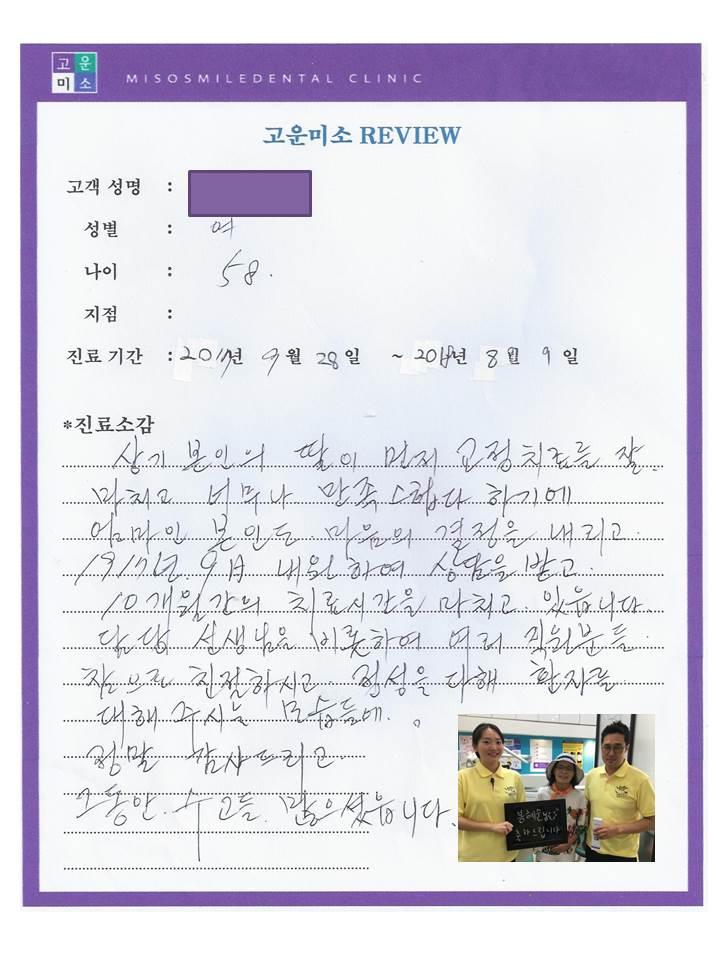 고운
미소
MISOSMILEDENTAL CLINIC
고운미소 REVIEW
고객 성명 :
성별 : 여
나이 : 58.
지점 :
진료 기간 : 2017년 9월 28일 ~ 2018년 8월 9일
*진료소감
상기 본인의 딸이 먼저 교정치료를 잘
마치고 너무나 만족스럽다 하기에
엄마인 본인도 마음의 결정을 내리고.
1917년. 9月 내원하여 상담을 받고.
10개월간의 치료시간을 마치고 있읍니다.
담당 선생님을 비롯하여 여러 직원분들.
참으로 친절하시고 정성을 다해 환자를
대해 주시는 모습들에.
정말 감사드리고.
그동안. 수고들 많으셨읍니다.
축하드립니다